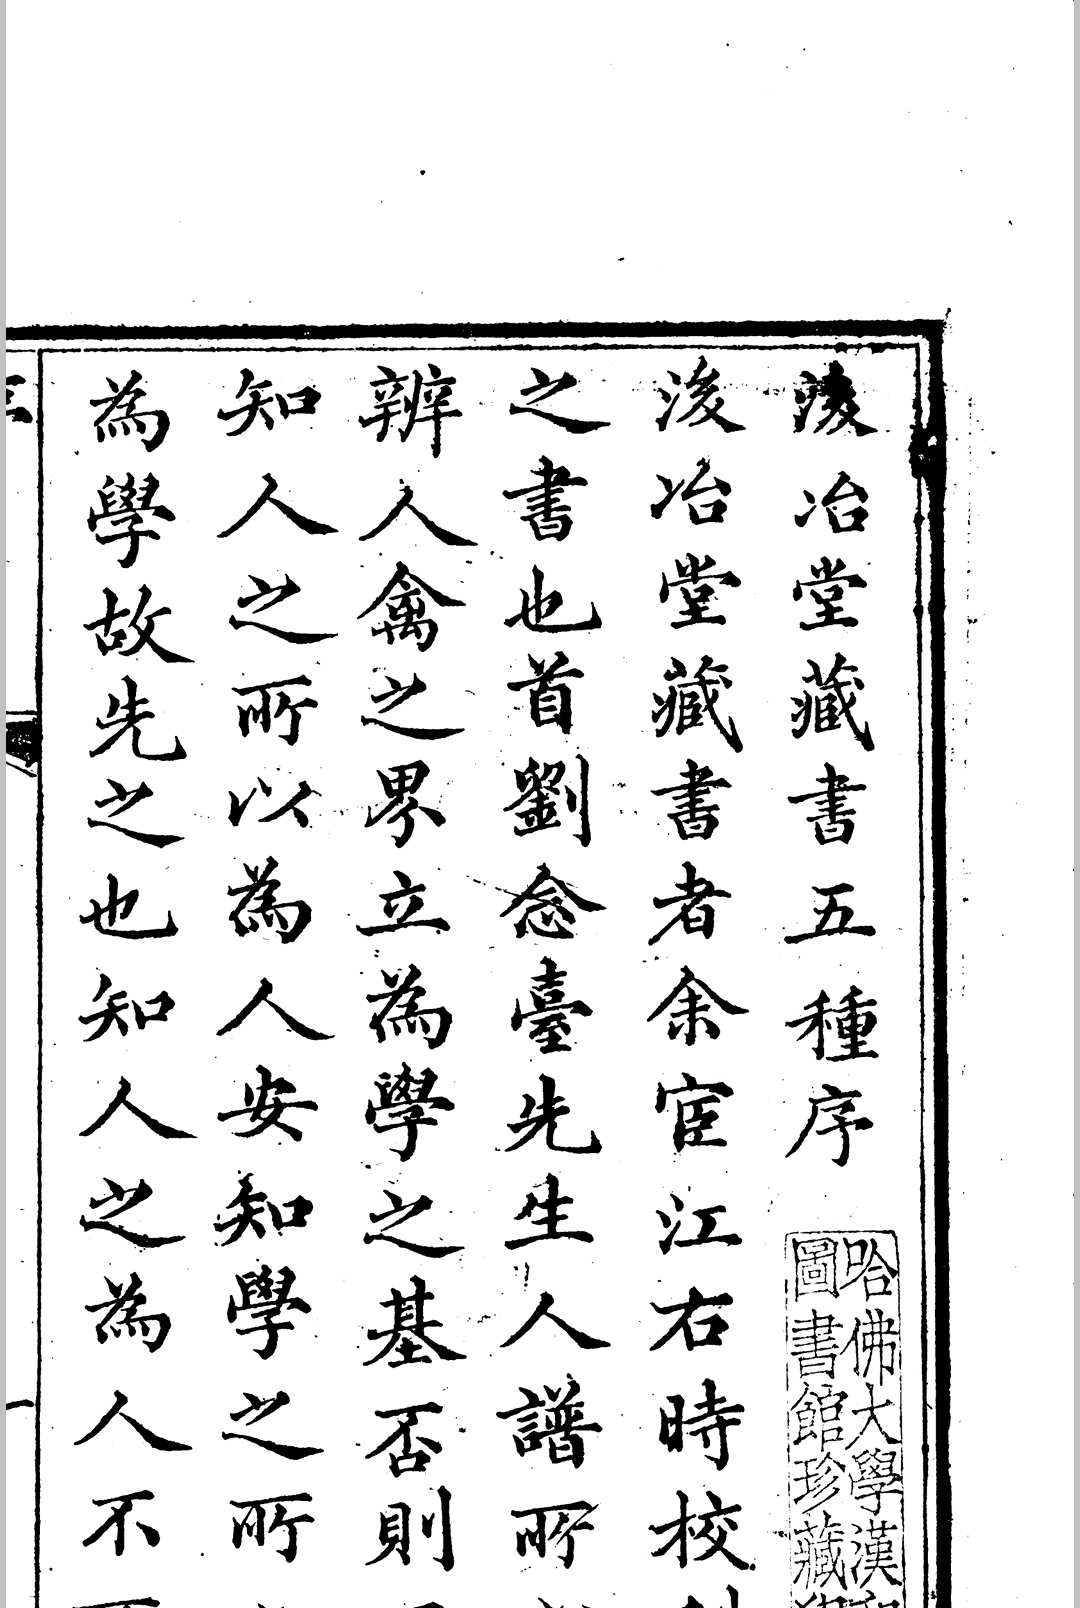 淩冶堂藏書五種序
哈佛大學漢和
圖書館珍藏
淩冶堂藏書者余宦江右時校刊
之書也首劉念臺先生人譜所
辨人禽之界立為學之基否則
知人之所以為人安知學之所
為學故先之也知人之為人不